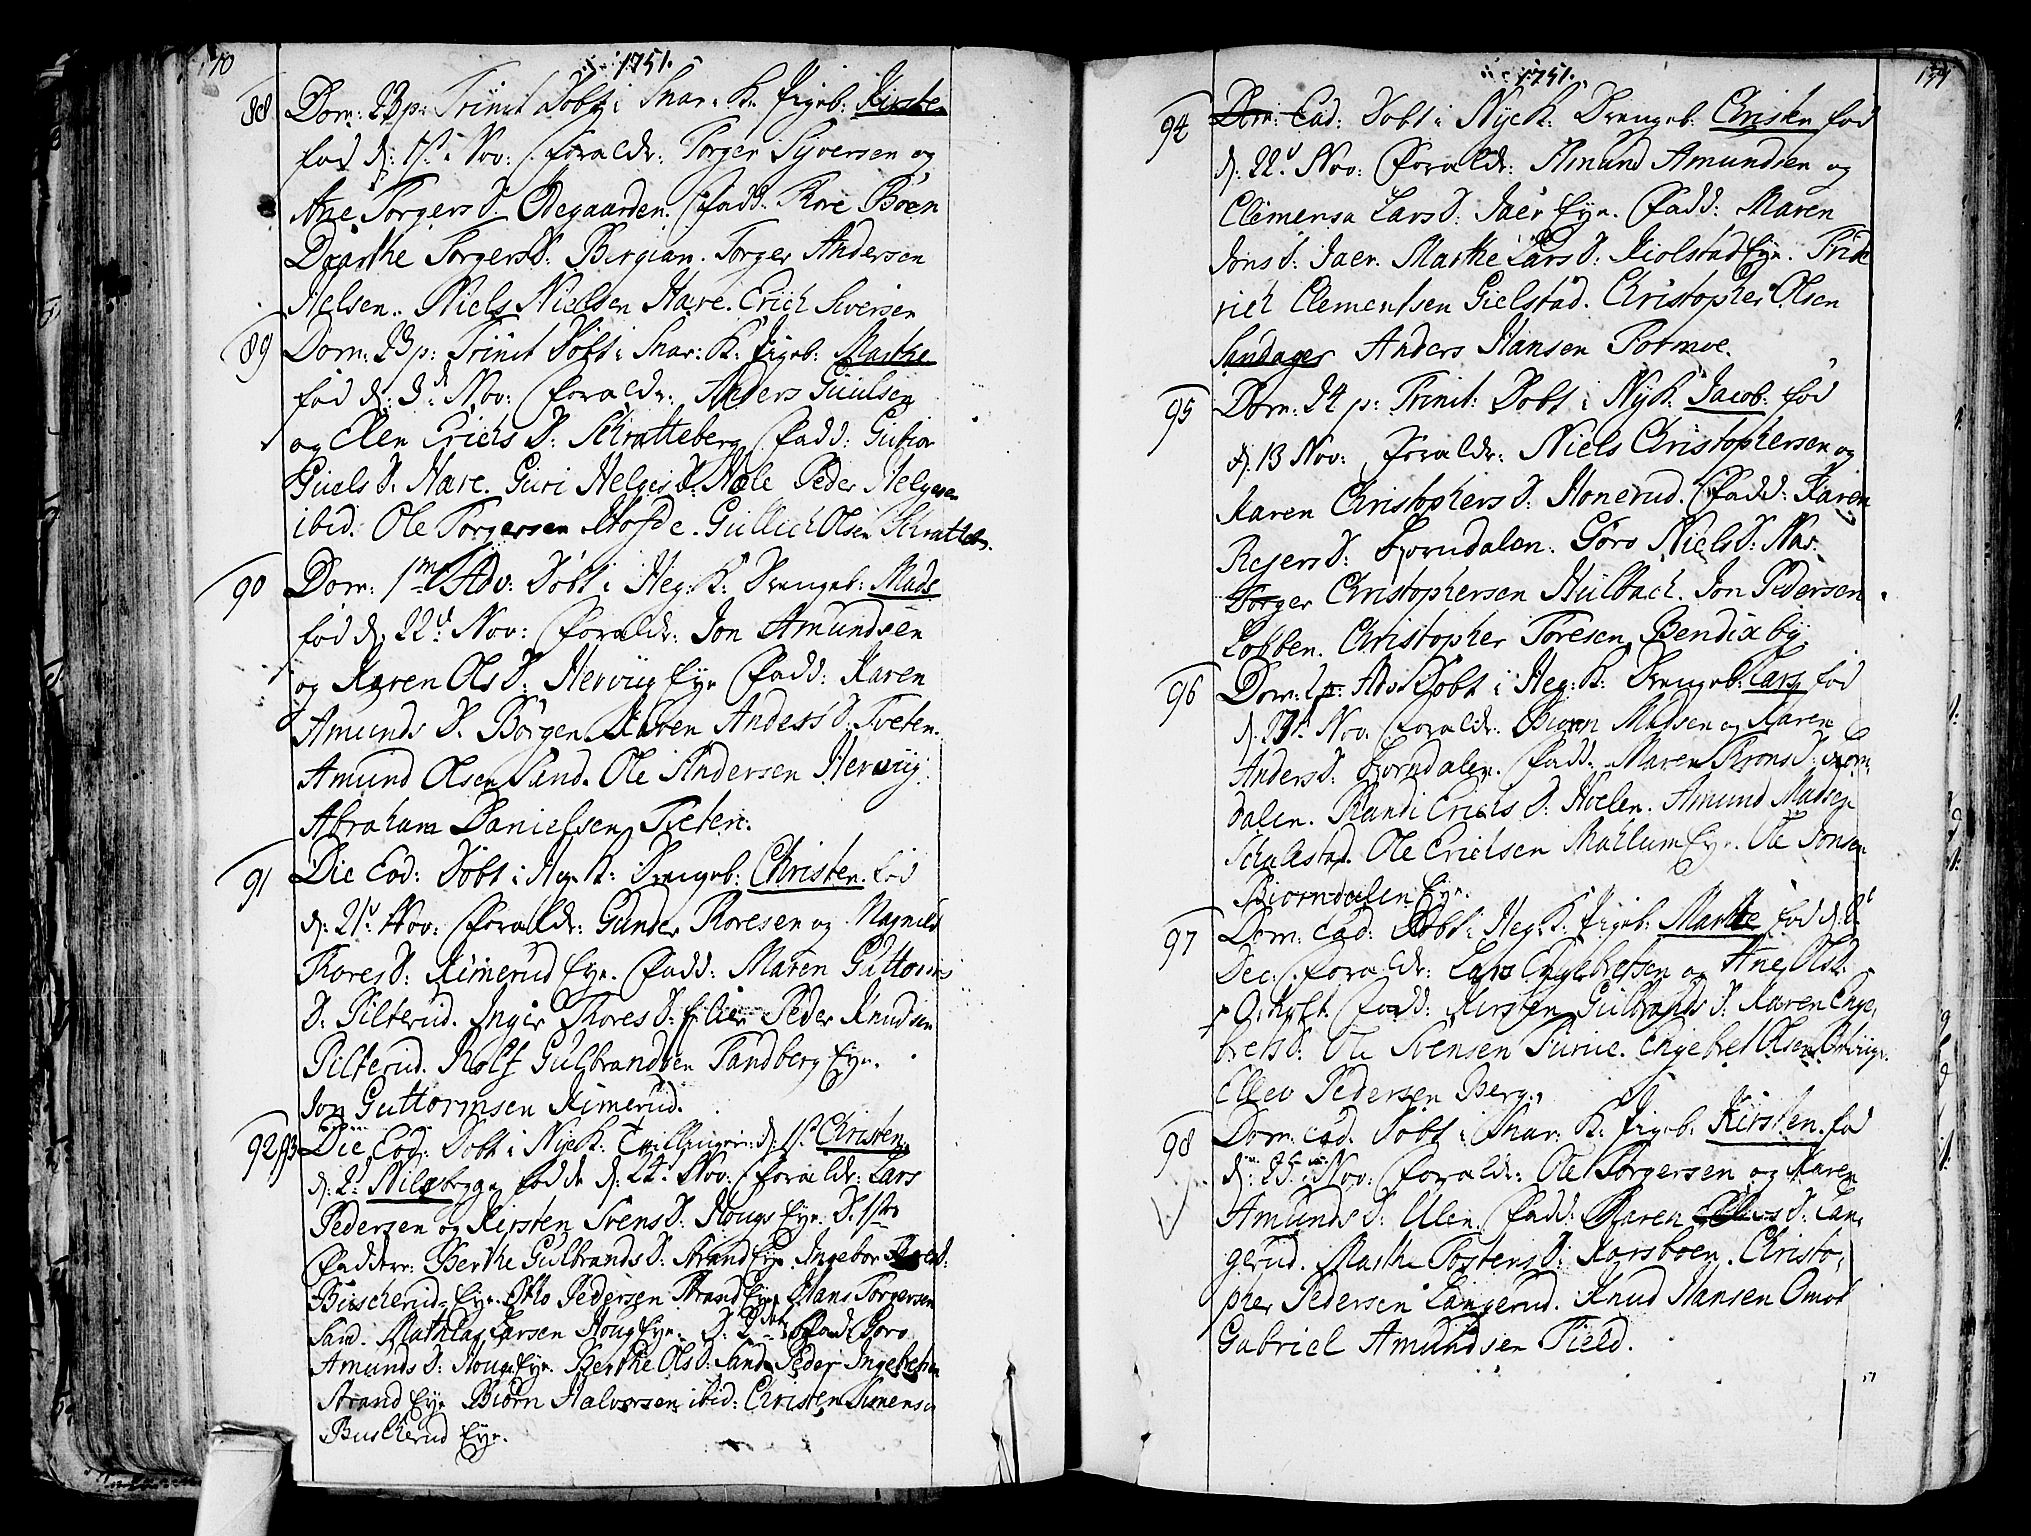 170
1751.
88 Dom: 23 p: Trinit Döbt i Snar: K: Pigeb: Kirsten
fød d: 17. Nov: Foraldr: Torger Syversen og
Ane Torgers D. Odegaarden. Fadd: Tore Böen
Dorthe Torgers D: Bergian. Torger Andersen
Nelsen. Niels Nielsen Hare. Erich Siversen
89 Dom: 23 p: Trinit Döbt i Snar: K: Pigeb: Marthe
fød d: 3d Nov: Foraldr: Anders Guulsen
og Elen Erichs D. Schratteberg Fadd:
Guels D. Hare. Guri Helges D. Hole Peder Helgesen
ibid: Ole Torgersen Hofde. Gullich Olsen Schratteb.
90 Dom: 1m Adv: Döbt i Heg: K: Drengeb: Mads
fød d. 22d Nov: Foraldr: Jon Amundsen
og Karen Ols D: Hervüg Eye Fadd: Karen
Amunds D. Börgen Karen Anders D. Tveten.
Amund Olsen Sand. Ole Andersen Hervüg.
Abraham Danielsen Tveten.
91 Die Eod: Döbt i Heg. K: Drengeb: Christen fød
d: 21d Nov: Foraldr: Gunder Thoresen og Magnild
Thores D: Rimerud Eye. Fadd: Maren Guttorms
D. Pilterud. Inger Thores D: Peder Knudsen
Pilterud. Rolf Gulbrandsen Tandberg Eye.
Jon Guttormsen Rimerud.
92 93 Die Eod: Döbt i Nye K: Tvillinger: d: 1st Christen
d: 2. fødde d: 24d Nov: Foraldr: Lars
Pedersen og Kirsten Svens D: Hougs Eye: D. 1stes
Faddere: Berthe Gulbrands D: Strand Eye. Ingebor
Buscherud Eye. Otto Pedersen Strand Eye Hans Torgersen
Sand. Mathias Larsen Houg Eye. D. 2den Fad: Goro
Amunds D: Houg Eye. Berthe Ols D: Sand Peder Ingebretsen
Strand Eye Biörn Halvorsen ibid: Christen Simensen
Buscherud Eye.
1751.
94 Dom: Eod: Döbt i Nye K: Drengeb: Christen fød
d: 22d Nov: Foraldr: Amund Amundsen og
Clemensa Lars D: Jaer Eye. Fadd: Maren
Jons D: Jaer. Marthe Lars D: Kiolstad Eye. Fride
rich Clementsen Gielstad. Christopher Olsen
Sandager Anders Hansen Formoe.
95 Dom: 24 p: Trinit: Döbt i Ny K: Jacob: fød
d. 13 Nov: Foraldr: Niels Christophersen og
Karen Christophers D: Honerud. Fadd: Karen
Rejers D: Biorndalen. Goro Niels D: Nas.
Torger Christophersen Hülbach. Jon Pedersen
Lobben. Christopher Toresen Bendixby.
96 Dom: 2 p: Adv: Döbt i Heg: K: Drengeb: Lars fød
d. Nov. Foraldr: Biorn Madsen og Karen
Anders D: Biorndalen. Fadd: Maren D:
dalen. Randi Erichs D: Hvelen. Amund Madsen
Ole Erichsen Mæhlum Eye. Ole Jonsen
Biorndalen Eye.
97 Dom: Eod: Döbt i Heg: K: Pigeb: Marthe fød d. 2d
Dec: Foraldr: Lars Engebretsen og Ane Ols D.
Fadd: Kirsten Gulbrands D: Karen Enge,
brets D: Ole Svensen Engebret Olsen
Ellev Pedersen Berg.
98 Dom: Eod: Döbt i Snar: K: Pigeb: Kirsten. fød
d: Nov: Foraldr: Ole Torgersen og Karen
Amunds D: Ulen. Fadd: Karen D: Lan,
gerud. Marthe Tostens D: Korsboen. Christo,
pher Pedersen Langerud. Knud Hansen Omot
Gabriel Amundsen Field.